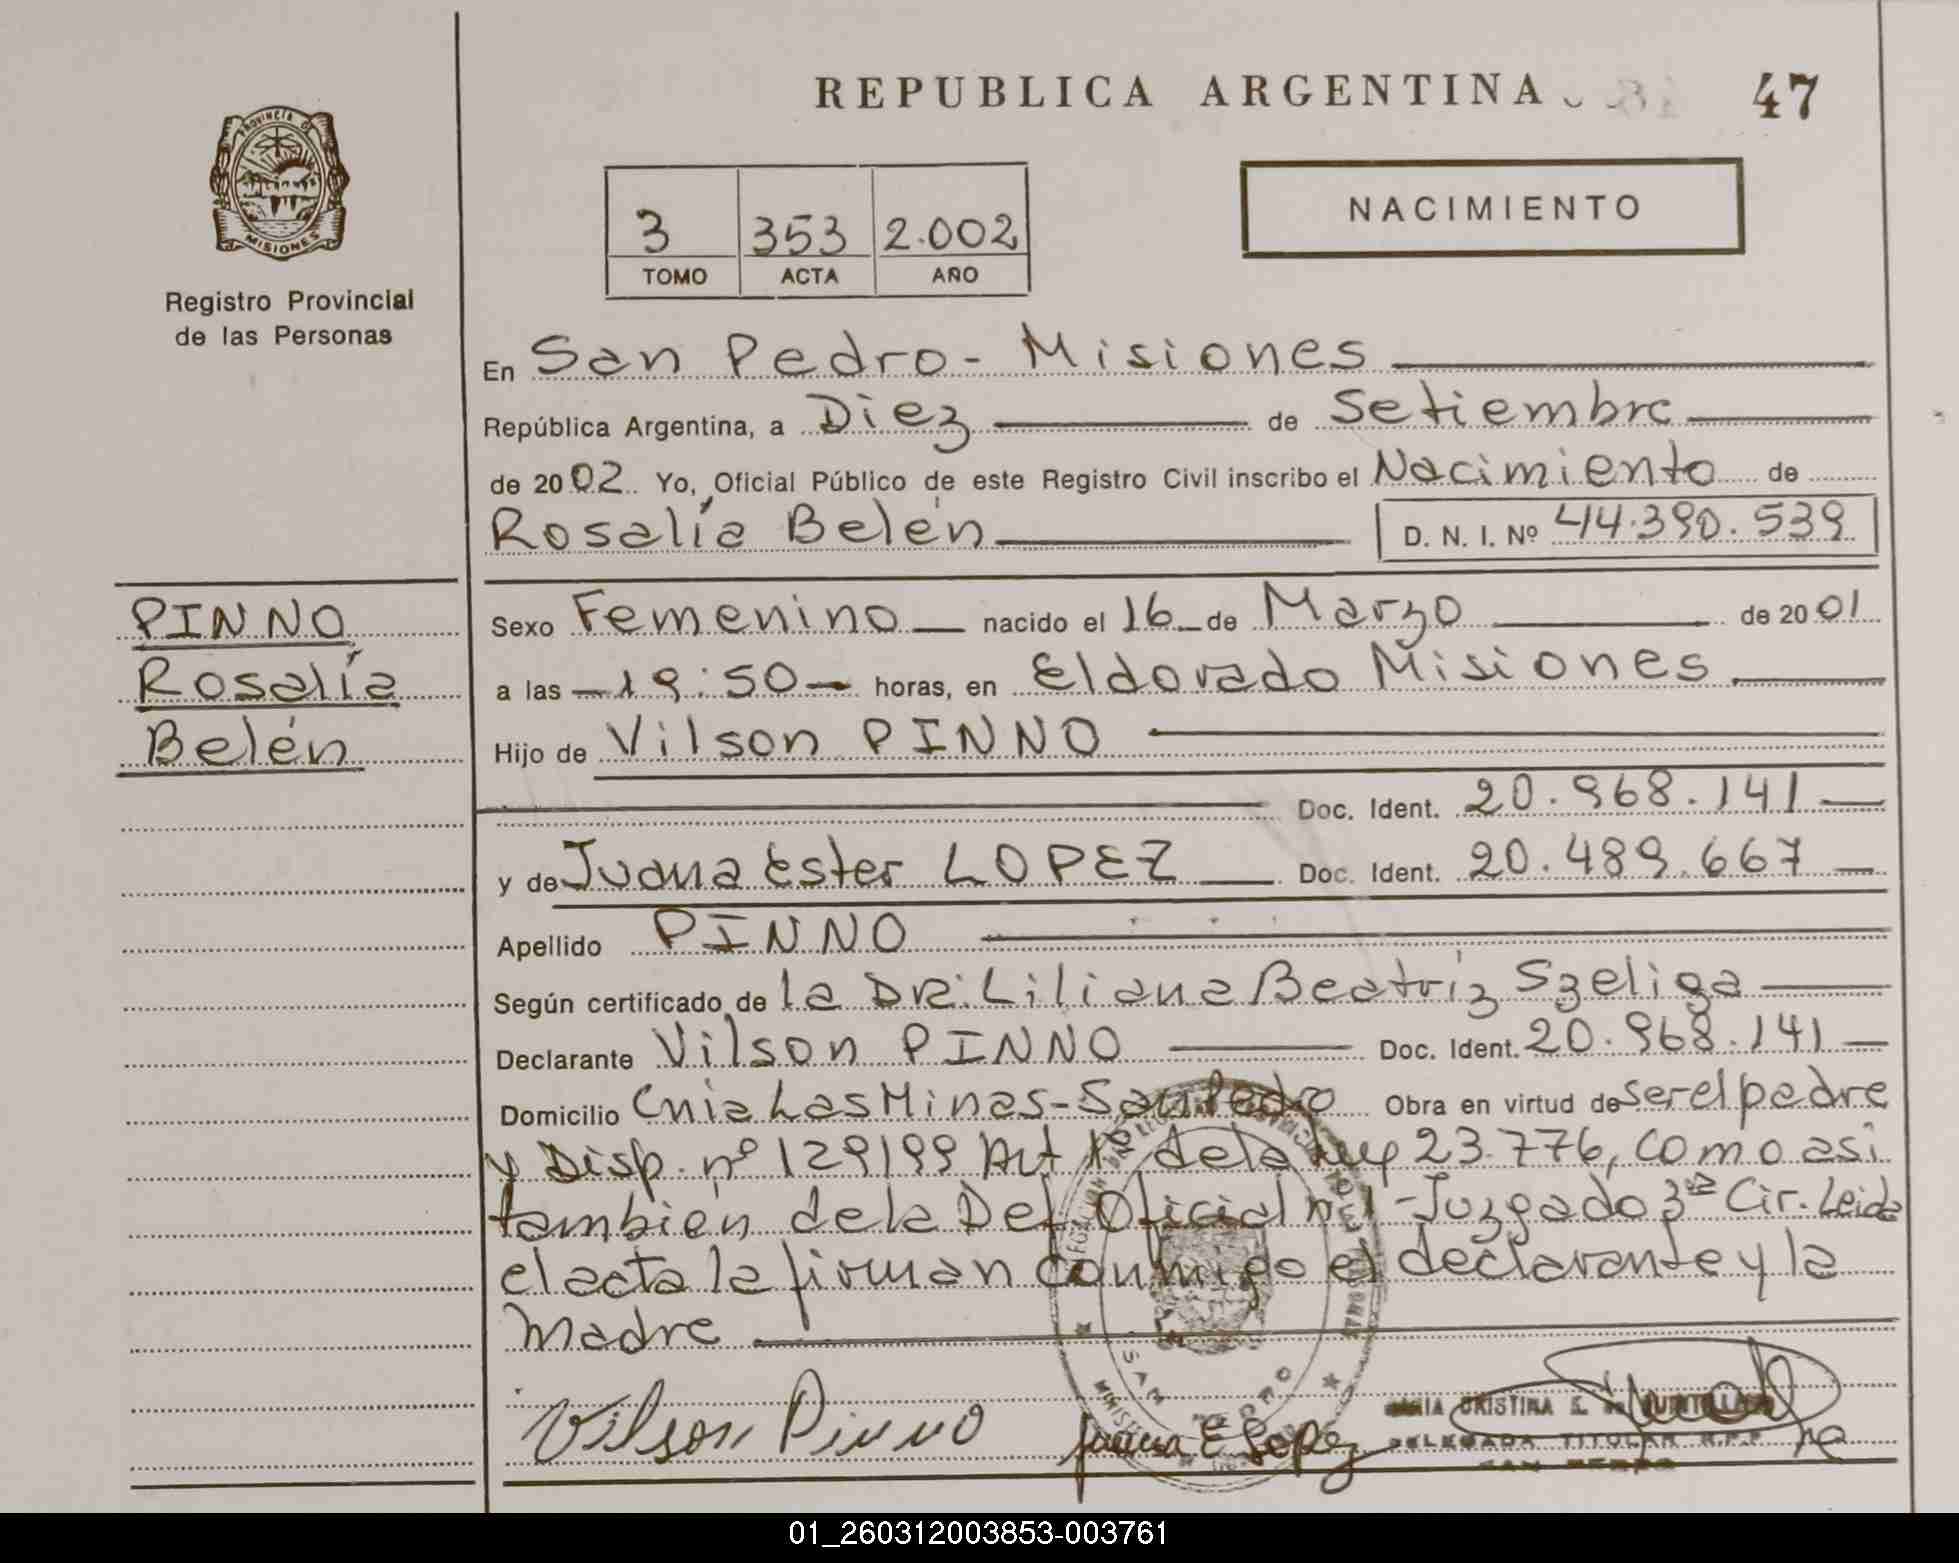 REPUBLICA ARGENTINA
47
PROVINCIA DE
MISIONES
Registro Provincial
de las Personas
3 353 2.002
TOMO ACTA AÑO
NACIMIENTO
En San Pedro - Misiones
República Argentina, a Diez de Setiembre
de 2002. Yo, Oficial Público de este Registro Civil inscribo el Nacimiento de
Rosalía Belén D. N. I. Nº 44.390.539
PINNO
Rosalía
Belén
Sexo Femenino nacido el 16 de Marzo de 2001
a las 19:50 horas, en Eldorado Misiones
Hijo de Vilson PINNO
Doc. Ident. 20.968.141
y de Juana Ester LOPEZ Doc. Ident. 20.489.667
Apellido PINNO
Según certificado de la DRª. Liliana Beatríz Szeliga
Declarante Vilson PINNO Doc. Ident. 20.968.141
Domicilio Cnia Las Minas - San Pedro Obra en virtud de ser el padre
y Disp. nº 129/99 Art 1º de la Ley 23.776, como asi
también de la Def. Oficial nº 1 - Juzgado 3ª Cir. Leida
el acta la firman conmigo el declarante y la
Madre
Vilson Pinno
Juana E Lopez
SAN PEDRO
MARIA CRISTINA E. de
DELEGADA TITULAR R.P.P.
SAN PEDRO
01_260312003853-003761